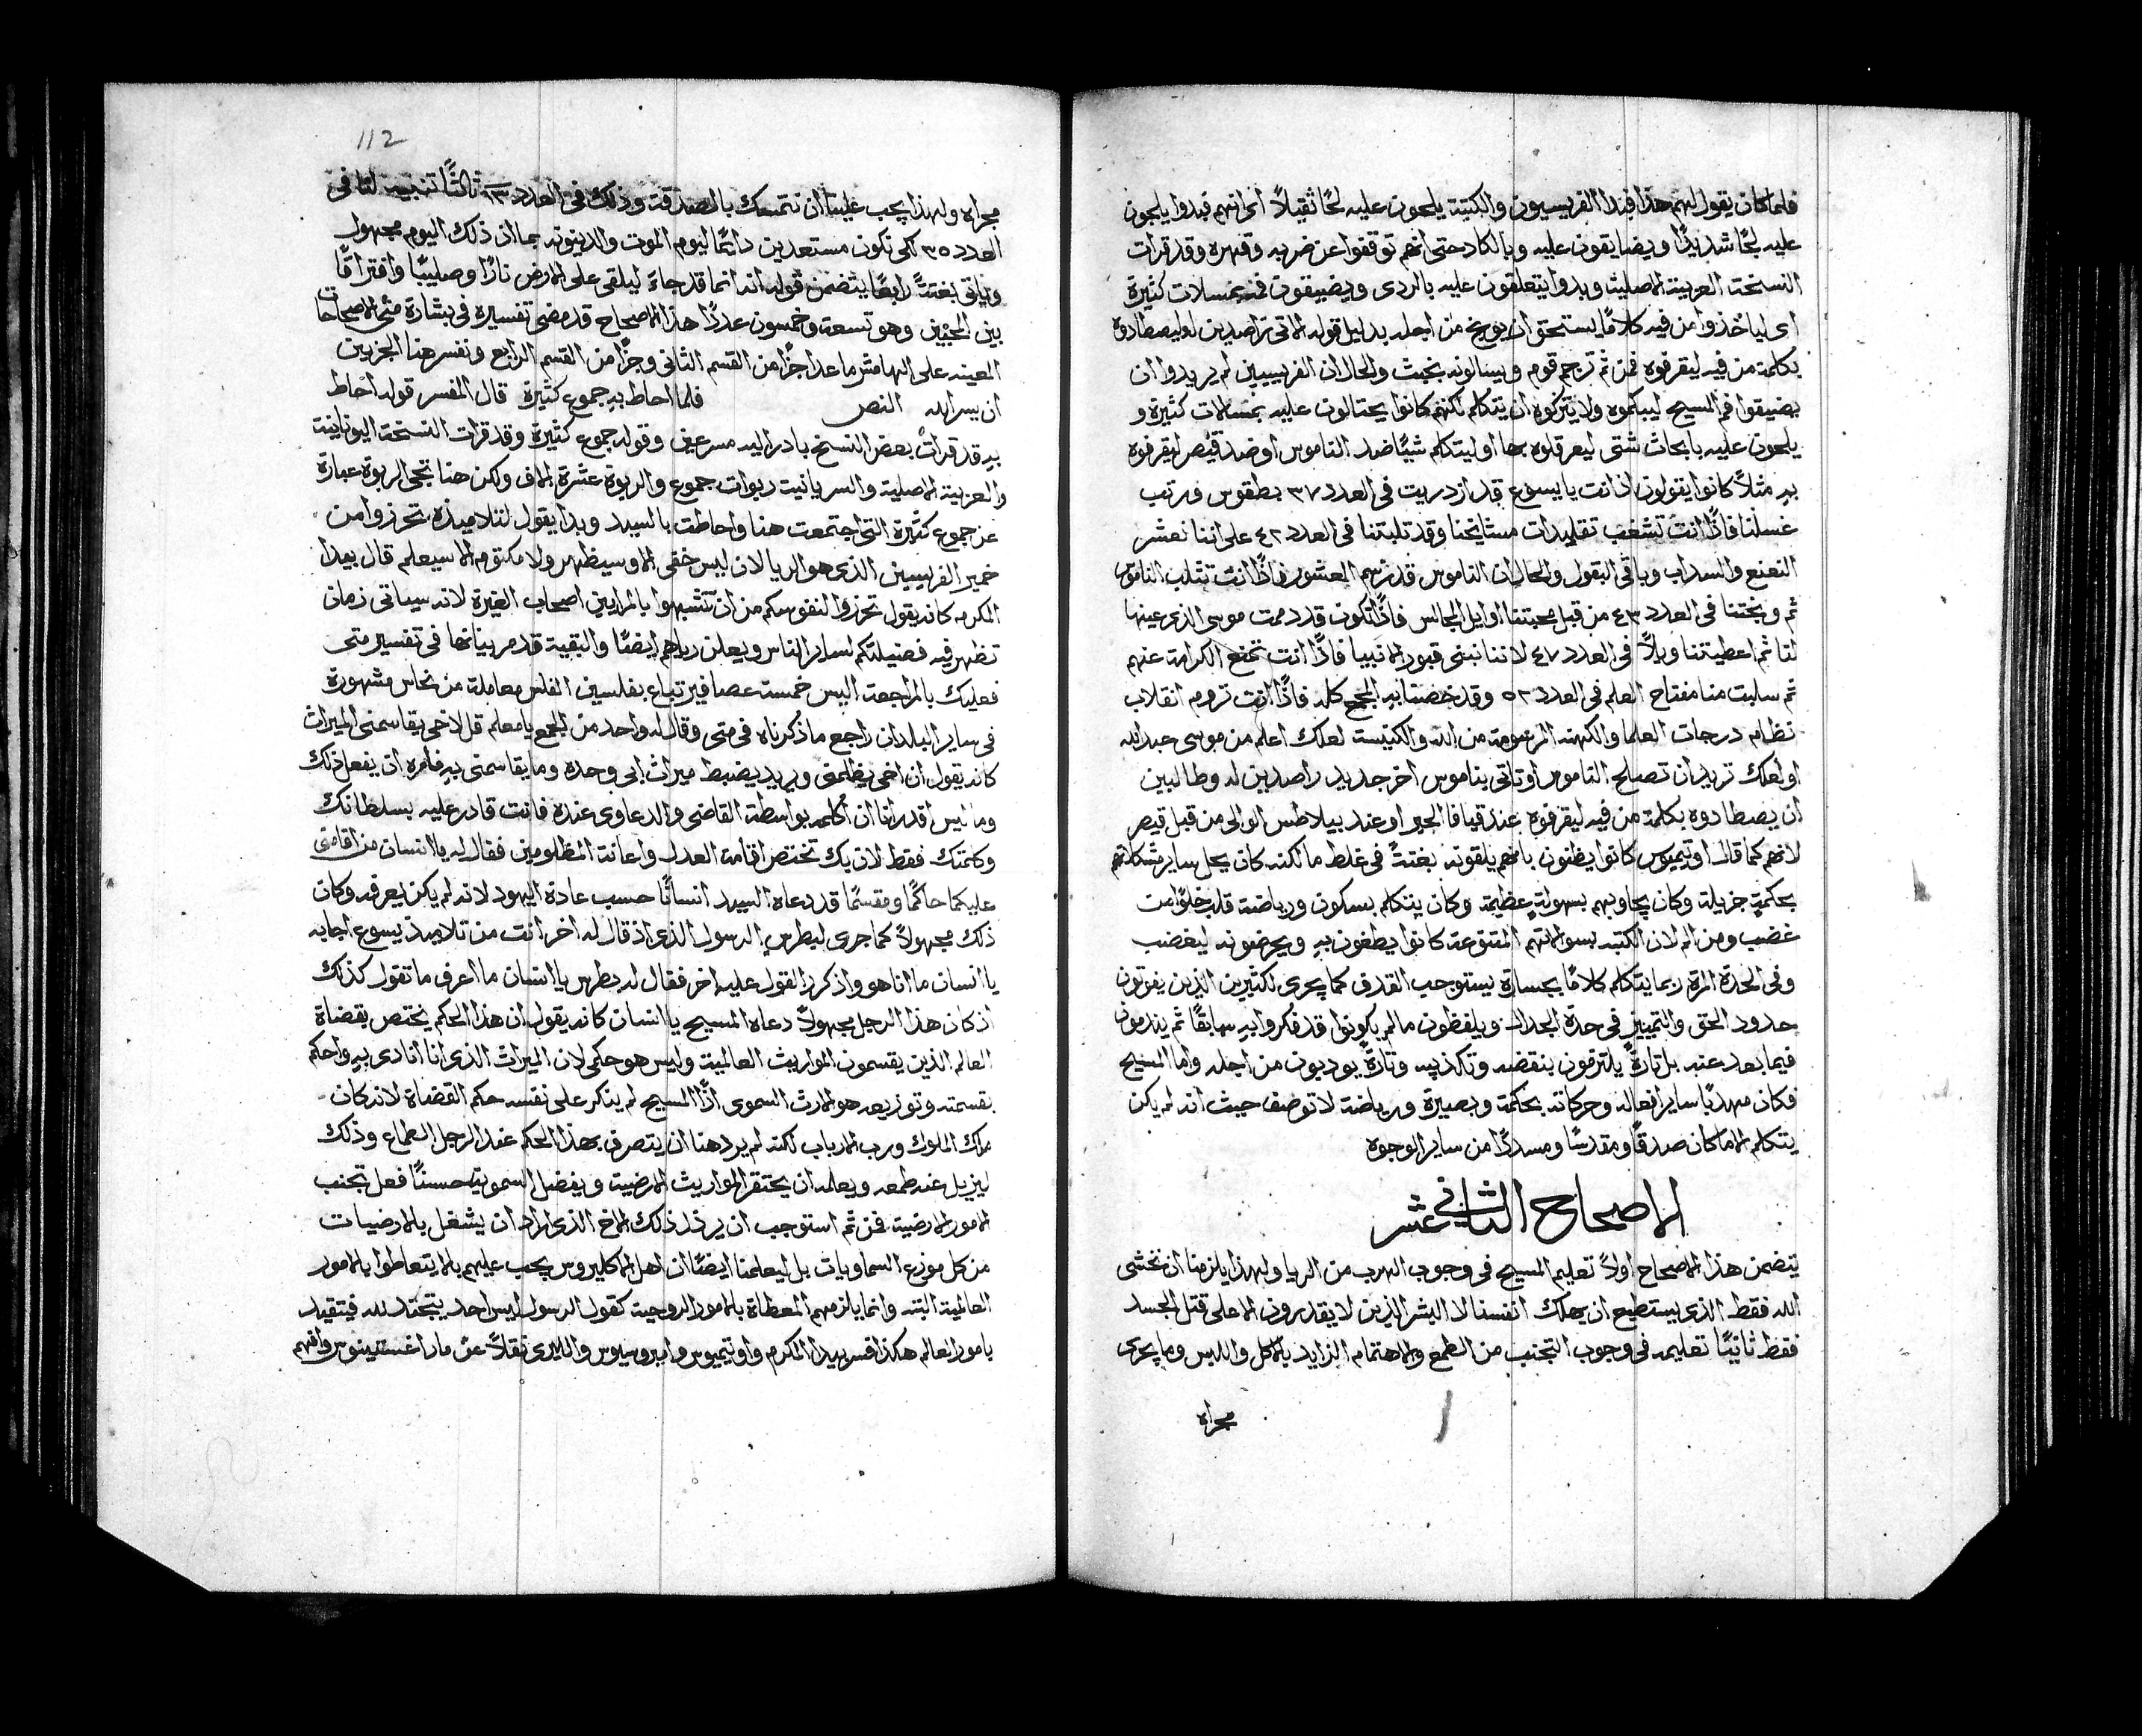 فلما كان يقول لهم هذا فبدا الفريسيون والكتبة يلحون عليه لحًا ثقيلاً اى انهم فبدوا يلحون
عليه لحًا شديدًا ويضايقون عليه وبالكاد حتى انهم توقفوا عن ضربه وقهره وقد قرات
النسخة العربية الاصلية وبدوا يتعلقون عليه بالردى ويضيقون فمه بمسالات كثيرة
اى لياخذوا من فيه كلامًا يستحق ان يوبخ من اجله بدليل قوله الاتى راصدين له ليصطادوه
بكلمة من فيه ليقرفوه فمن ثم ترجم قوم ويسالونه بخبث والحال ان الفريسيين لم يريدوا ان
يضيقوا فم المسيح ليبكموه ولا يتركوه ان يتكلم لكنهم كانوا يحتالون عليه بمسالات كثيرة و
يلحون عليه بابحاث شتى ليعرقلوه بها او ليتكلم شيًا ضد الناموس او ضد قيصر ليقرفوه
به مثلاً كانوا يقولون اذ انت يا يسوع قد ازدريت فى العدد ٣٧ بطقوس ورتب
غسلنا فاذًا انت تشغب تقليدات مشايخنا وقد تلبتنا فى العدد ٤٢ على اننا نعشر
النعنع والسداب وباقى البقول والحال ان الناموس قد رسم العشور فاذًا انت تثلب الناموس
ثم وبختنا فى العدد ٤٣ من قبل محبتنا اوايل المجالس فاذًا تكون قد ذممت موسى الذى عينها
لنا ثم اعطيتنا ويلاً فى العدد ٤٧ لاننا نبنى قبور الانبيا فاذًا انت تمنع الكرامة عنهم
ثم سلبت منا مفتاح العلم فى العدد ٥٢ وقد خصتنا به المجمع كله فاذًا انت تروم انقلاب
نظام درجات العلما والكهنة المرسومة من الله والكنيسة لعلك اعلم من موسى عبد الله
او لعلك تريد ان تصلح الناموس او تاتى بناموس اخر جديد راصدين له وطالبين
ان يصطادوه بكلمة من فيه ليقرفوه عند قيافا الحبر او عند بيلاطس الوالى من قبل قيصر
لانهم كما قال اوتيميوس كانوا يظنون بانهم يلقونه بغتتً فى غلط ما لكنه كان يحل ساير مشكلاتهم
بحكمةٍ جزيلة وكان يجاوبهم بسهولةٍ عظيمة وكان يتكلم بسكون ورياضة قلب خلوًا من
غضب ومن الم لان الكتبه بسوالاتهم المتنوعة كانوا يطغون به ويحرضونه ليغضب
وفى الحدة المرة ربما يتكلم كلامًا بجسارةٍ يستوجب القدف كما يجرى لكثيرين الذين يفوتون
حدود الحق والتمييز فى حدة الجدال ويلفظون ما لم يكونوا قد فكروا به سابقًا ثم يندمون
فيما بعد عنه بل تارةً يلتزمون بنقضه وتكذيبه وتارةً يوديون من اجله واما المسيح
فكان مهذبًا ساير افعاله وحركاته بحكمة وبصيرة ورياضة لا توصف حيث انه لم يكن
يتكلم الا ما كان صدقًا ومقدسًا ومسددًا من ساير الوجوه
الاصحاح الثانى عشر
يتضمن هذا الاصحاح اولاً تعليم المسيح فى وجوب الهرب من الريا ولهذا يلزمنا ان نخشى
الله فقط الذى يستطيع ان يهلك انفسنا لا البشر الذين لا يقدرون الا على قتل الجسد
فقط ثانيًا تعليمه فى وجوب التجنب من الطمع والاهتمام الزايد بالاكل واللبس وما يجرى
مجراه
112
مجراه ولهذا يجب علينا ان نتمسك بالصدقة وذلك فى العدد ٣٣ ثالثًا تنبيه لنا فى
العدد ٣٥ لكى نكون مستعدين دايمًا ليوم الموت والدينونة بما ان ذلك اليوم مجهول
وياتى بغتتً رابعًا يتضمن قوله انه انما قد جاء ليلقى على الارض نارًا وصليبًا وافتراقًا
بين المحبين وهو تسعة وخمسون عددًا هذا الاصحاح قد مضى تفسيره فى بشارة متى الاصحاحات
المعينه على الهامش ما عدا جزًا من القسم الثانى وجزًا من القسم الرابع ونفسر هنا الجزين
ان يسر الله النص فلما احاط به جموع كثيرة قال المفسر قوله احاط
به قد قرات بعض النسخ بادر اليه مسرعين وقوله جموع كثيرة وقد قرات النسخة اليونانية
والعربية الاصلية والسريانية ربوات جموع والربوة عشرة الاف ولكن هنا تجى الربوة عبارة
عن جموع كثيرة التى اجتمعت هنا واحاطت بالسيد وبدا يقول لتلاميذه تحرزوا من
خمير الفريسيين الذى هو الريا لان ليس خفى الا وسيظهر ولا مكتوم الا سيعلم قال بيدا
المكرم كانه يقول تحرزوا لنفوسكم من ان تتشبهوا بالمرايين اصحاب الغيرة لانه سياتى زمان
تظهر فيه فضيلتكم لساير الناس ويعلن رياهم ايضًا والبقية قد مر بيانها فى تفسير متى
فعليك بالمراجعة اليس خمسة عصافير تباع بفلسين الفلس معاملة من نحاس مشهورة
فى ساير البلدان راجع ما ذكرناه فى متى وقال له واحد من الجمع يا معلم قل لاخى يقاسمنى الميراث
كانه يقول ان اخى يظلمنى ويريد يضبط ميراث ابى وحده وما يقاسمنى به فامره ان يفعل ذلك
وما ليس اقدر انا ان اكلمه بواسطة القاضى والدعاوى عنده فانت قادر عليه بسلطانك
وكلمتك فقط لان بك تختص اقامة العدل واعانة المظلومين فقال له يا انسان من اقامنى
عليكما حاكمًا ومقسمًا قد دعاه السيد انسانًا حسب عادة اليهود لانه لم يكن يعرفه وكان
ذلك مجهولاً كما جرى لبطرس الرسول الذى اذ قال له اخر انت من تلاميذ يسوع اجابه
يا انسان ما انا هو واذ كرر القول عليه اخر فقال له بطرس يا انسان ما اعرف ما تقول كذلك
اذ كان هذا الرجل مجهولاً دعاه المسيح يا انسان كانه يقول ان هذا الحكم يختص بقضاة
العالم الذين يقسمون المواريث العالمية وليس هو حكمى لان الميراث الذى انا انادى به واحكم
بقسمته وتوزيعه هو الارث السموى اذًا المسيح لم ينكر على نفسه حكم القضاة لانه كان
ملك الملوك ورب الارباب لكنه لم يرد هنا ان يتصرف بهذا الحكم عند الرجل الطماع وذلك
ليزيل عنه طمعه ويعلمه ان يحتقر المواريث الارضية ويفضل السموية حسنًا فعل بتجنب
الامور الارضية فمن ثم استوجب ان يرذل ذلك الاخ الذى اراد ان يشغل بالارضيات
من كل موزع السماويات بل ليعلمنا ايضًا ان اهل الاكليروس يجب عليهم بالا يتعاطوا بالامور
العالمية البته وانما يلزمهم المعطاة بالامور الروحية كقول الرسول ليس احد يتجند لله فيتقيد
بامور العالم هكذا فسر بيدا المكرم واوتيميوس وامبروسيوس والليرى نقلاً عن مار اغستينوس وافهم